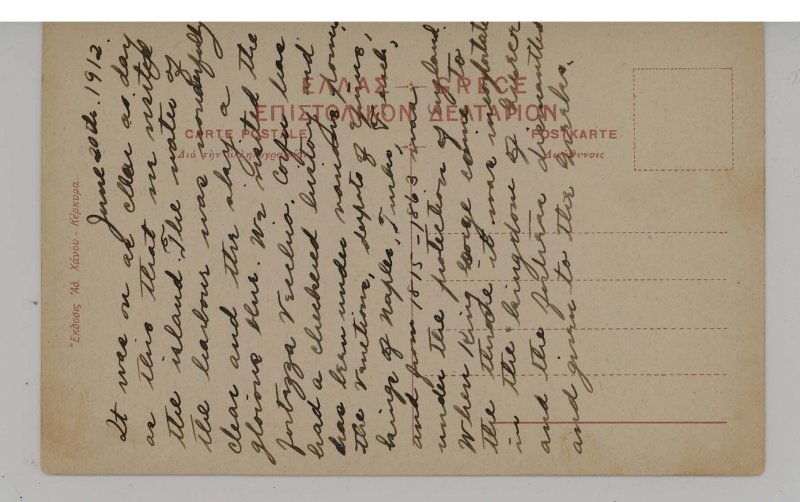 ΕΛΛΑΣ GRECE
ΕΠΙΣΤΟΛΙΚΟΝ ΔΕΛΤΑΡΙΟΝ
CARTE POSTALE
POSTKARTE
Διὰ τὴν ἀλληλογραφίαν
Διεύθυνσις
Ἔκδοσις Ἀδ. Χάνου - Κέρκυρα.
June 20th. 1912.
It was on as clear as day
as this that we visited
the island. The water of
the harbour was wonderfully
clear and the sky a
glorious blue. We visited the
fortezza vecchia. Corfu has
had a checkered history and
has been under
the Venetians, of
kings of Naples, Turks, French,
and from 1815-1863 was
under the protection of England.
When King George came to
the throne it was
in the kingdom of Greece
and the
and given to the Greeks.